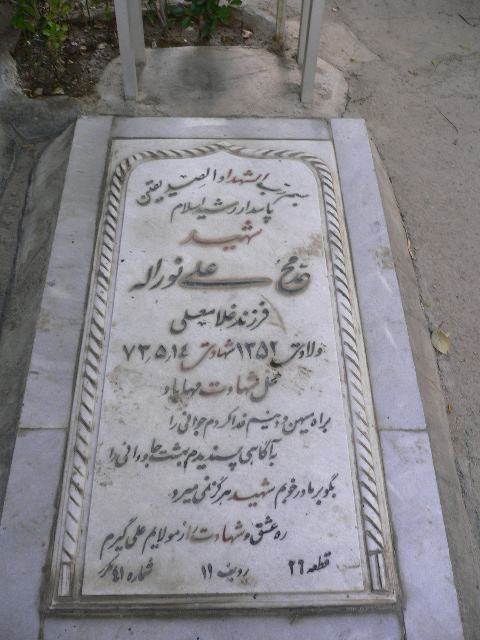 بسم رب الشهداء و الصدیقین
پاسدار رشید اسلام
شهید
محمد علی نوراله
فرزند غلامعلی
ولادت ۱۳۵۲ شهادت ۷۳٫۵٫۱٤
محل شهادت مهاباد
براه میهن و دینم فدا کردم جوانی را
بآگاهی پسندیدم بهشت جاودانی را
بگو بر مادر خوبم شهید هرگز نمی میرد
ره عشق و شهادت از مولایم علی گیرم
قطعه ۲۶ ردیف ۱۱ شماره ٤۱